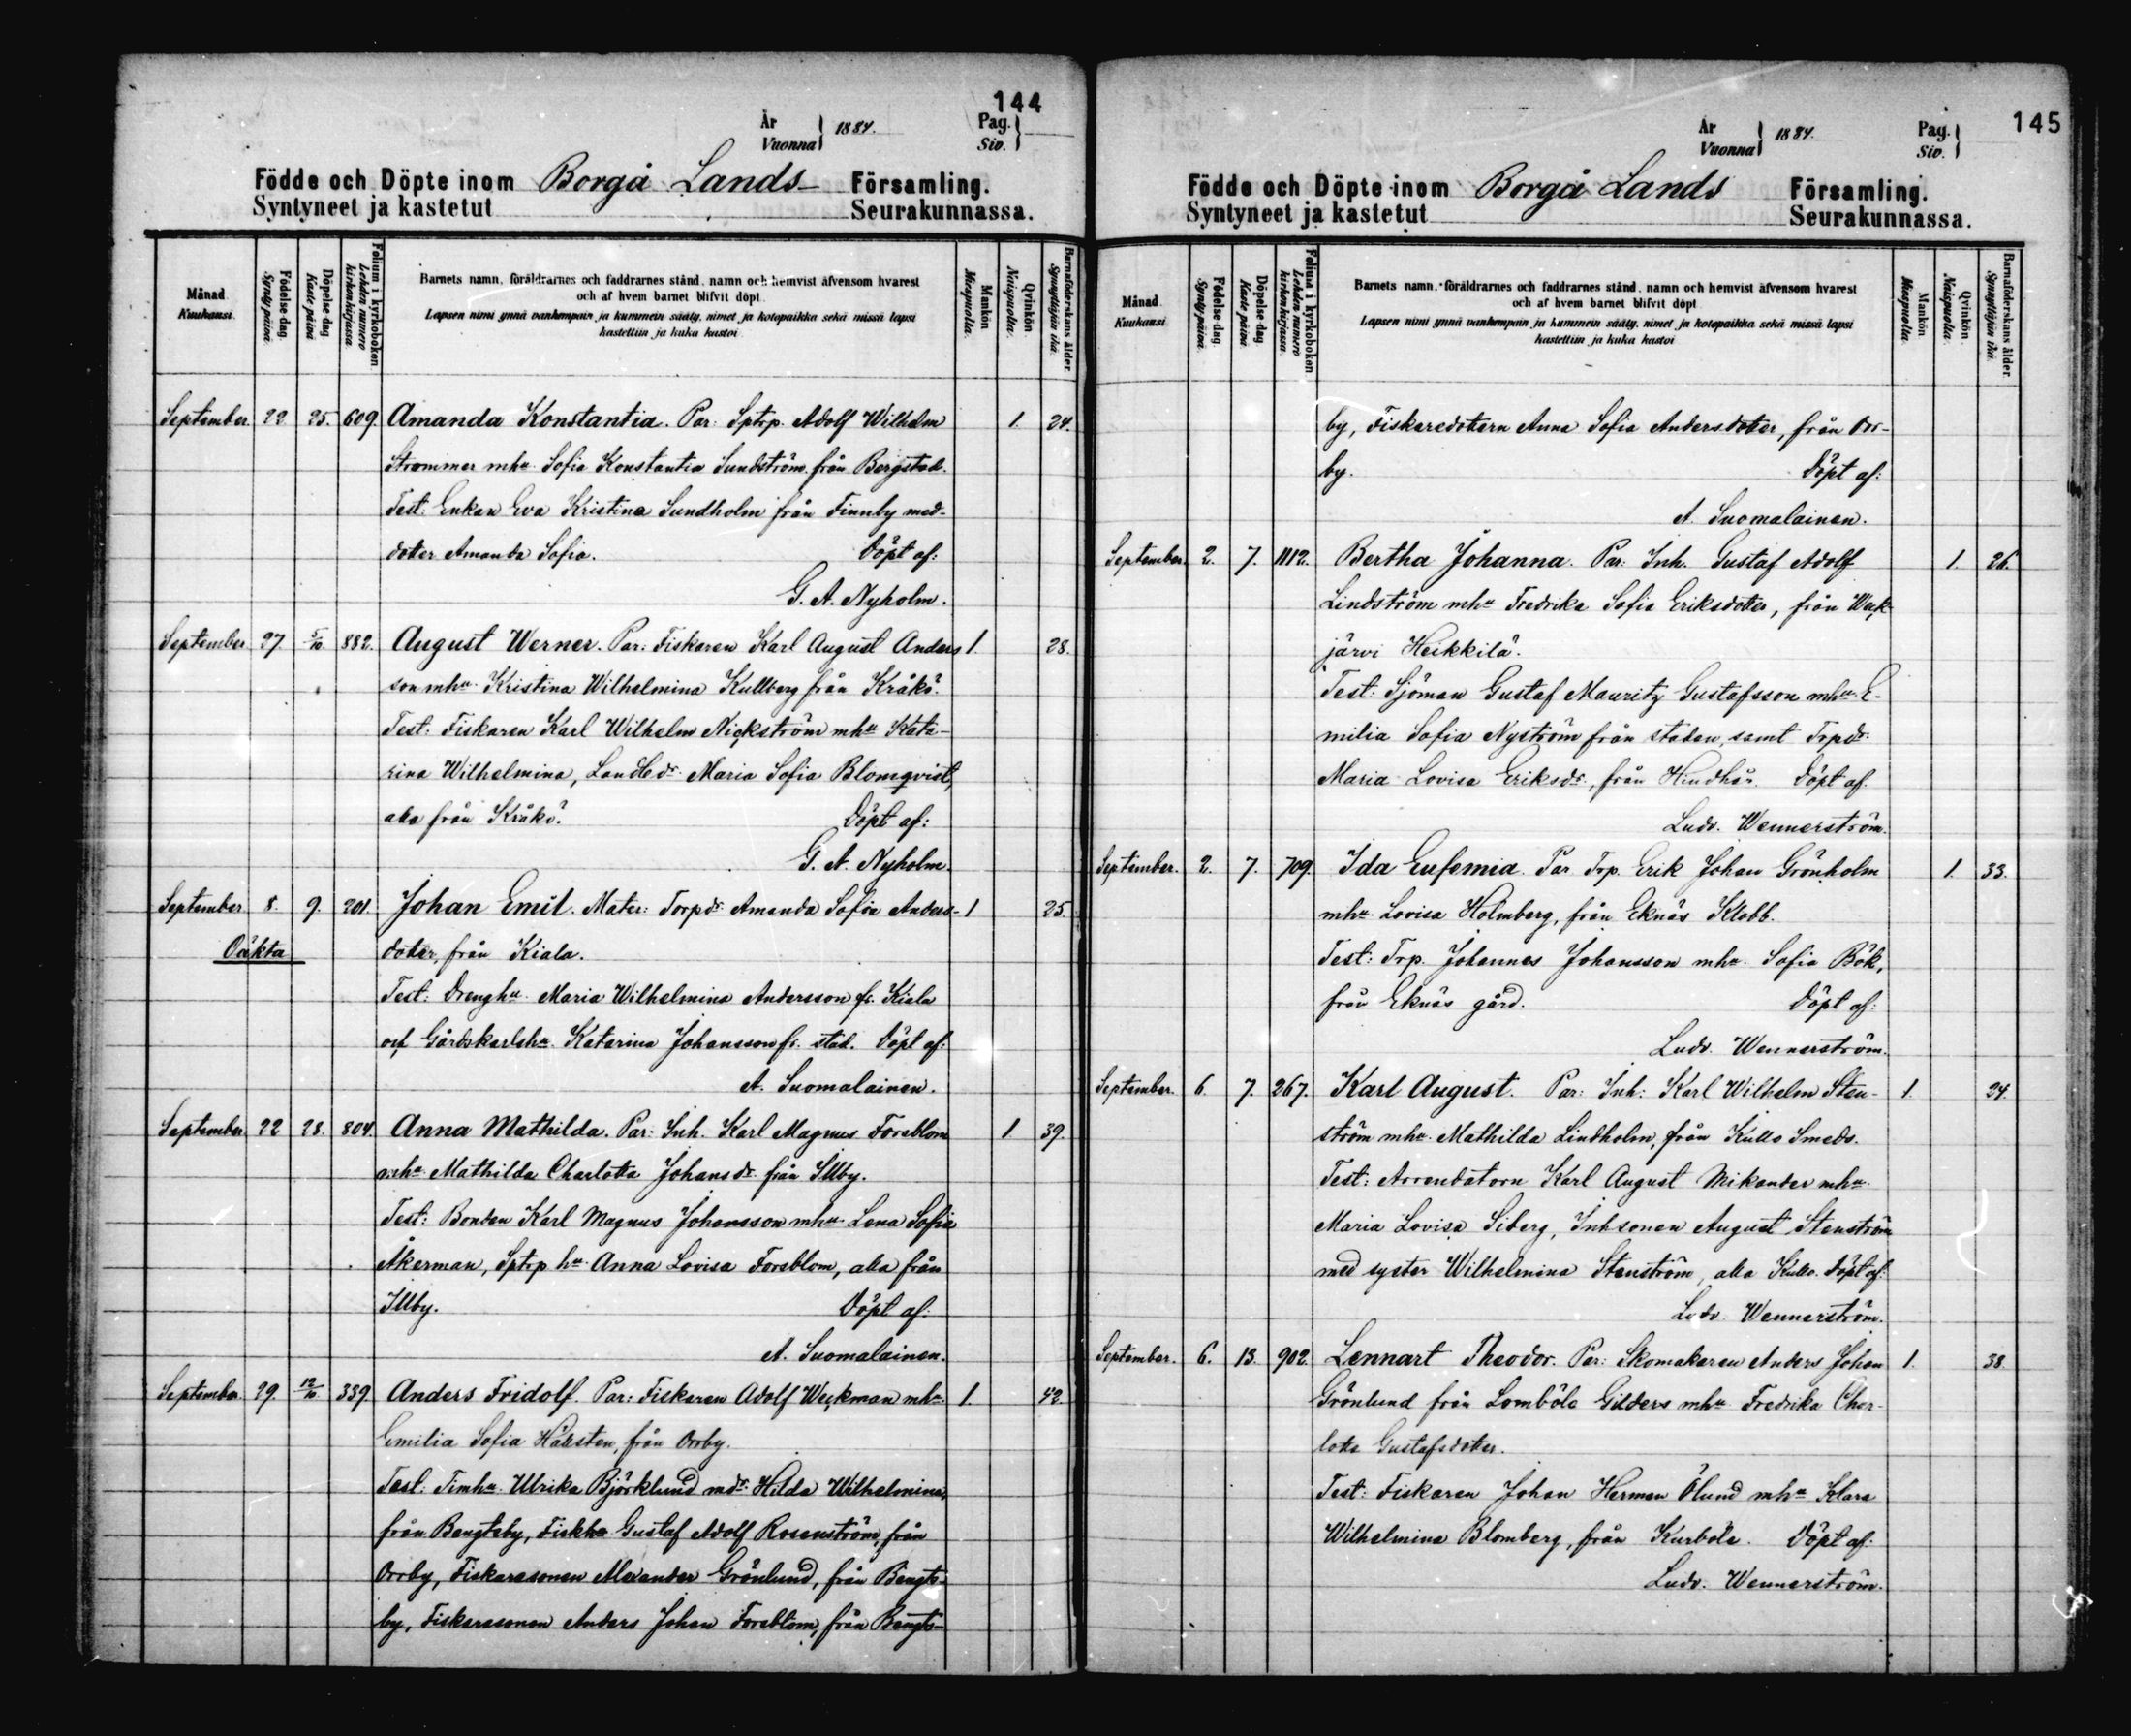 144
År
Vuonna
1884.
Pag.
Siv.
Födde och Döpte inom Borgå Lands Församling.
Syntyneet ja kastetut Seurakunnassa.
Månad
Kuukausi.
Födelse dag.
Synty päivä.
Döpelse dag.
Kaste päivä
Folium i kyrkoboken
Lehden numero kirkonkirjassa.
Barnets namn, föräldrarnes och faddrarnes stånd, namn och hemvist äfvensom hvarest
och af hvem barnet blifvit döpt.
Lapsen nimi ynnä vanhempain ja kummein sääty, nimet ja kotopaikka sekä missä lapsi
kastettiin ja kuka kastoi.
Mankön
Miespuolia.
Qvinkön
Naispuolia.
Barnaföderskans ålder.
Synnyttäjän ikä.
September 22 25. 609. Amanda Konstantia. Par: Sptrp. Adolf Wilhelm 1. 24.
Strömmer mhu Sofia Konstantia Sundström från Bergstad.
Test: Enkan Eva Kristina Sundholm från Finnby med
dotter Amanda Sofia. Döpt af:
G. A. Nyholm.
September 27. 5/10. 882. August Werner. Par: Fiskaren Karl August Anders 1. 28.
son mhu Kristina Wilhelmina Kullberg från Kråkö.
Test: Fiskaren Karl Wilhelm Nickström mhu Kata-
rina Wilhelmina, Landbdr Maria Sofia Blomqvist,
alla från Kråkö. Döpt af:
G. A. Nyholm.
September 8. 9. 201. Johan Emil. Mater: Torpdr Amanda Sofia Anders- 1 25.
Oäkta dotter, från Kiala.
Test: Drenghu Maria Wilhelmina Andersson fr. Kiala
och Gårdskarlshu Katarina Johansson fr. stad. Döpt af:
A. Suomalainen.
September 22 28. 804. Anna Mathilda. Par: Inh. Karl Magnus Forsblom 1 39.
mhu Mathilda Charlotta Johansdr från Illby.
Test: Bonden Karl Magnus Johansson mhu Lena Sofia
Åkerman, Sptrp hu Anna Lovisa Forsblom, alla från
Illby. Döpt af:
A. Suomalainen.
September 29. 12/10. 339. Anders Fridolf. Par: Fiskaren Adolf Weckman mhu 1. 42.
Emilia Sofia Hållsten, från Orrby.
Test: Timhu Ulrika Björklund mdr Hilda Wilhelmina,
från Bengtsby, Fiskhu Gustaf Adolf Rosenström, från
Orrby, Fiskaresonen Alexander Grönlund, från Bengts-
by, Fiskaresonen Anders Johan Forsblom, från Bengts-
145
År
Vuonna
1884.
Pag.
Siv.
Födde och Döpte inom Borgå Lands Församling.
Syntyneet ja kastetut Seurakunnassa.
Månad
Kuukausi
Födelse dag.
Synty päivä.
Döpelse dag.
Kaste päivä.
Folium i kyrkoboken
Lehden numero kirkonkirjassa.
Barnets namn, föräldrarnes och faddrarnes stånd, namn och hemvist äfvensom hvarest
och af hvem barnet blifvit döpt.
Lapsen nimi ynnä vanhempain ja kummein sääty, nimet ja kotopaikka sekä missä lapsi
kastettiin ja kuka kastoi
Mankön
Miespuolia.
Qvinkön
Naispuolia.
Barnaföderskans ålder.
Synnyttäjän ikä.
by, Fiskaredottern Anna Sofia Andersdotter, från Orr-
by. Döpt af:
A. Suomalainen.
September. 2. 7. 1112. Bertha Johanna. Par: Inh. Gustaf Adolf 1. 26.
Lindström mhu Fredrika Sofia Eriksdotter, från Veck
järvi Heikkilä.
Test: Sjöman Gustaf Mauritz Gustafsson mhu E-
milia Sofia Nyström från staden, samt Trpdr
Maria Lovisa Eriksdr, från Hindhår. Döpt af.
Ludv. Wennerström.
September. 2. 7. 709. Ida Eufemia. Par Trp. Erik Johan Grönholm 1. 33.
mhu Lovisa Holmberg, från Eknäs Klobb.
Test: Trp. Johannes Johansson mhu Sofia Bök,
från Eknäs gård. Döpt af:
Ludv. Wennerström.
September. 6. 7. 267. Karl August. Par: Inh: Karl Wilhelm Sten- 1. 24.
ström mhu Mathilda Lindholm, från Kullo Smeds.
Test: Arrendatorn Karl August Mikander mhu
Maria Lovisa Siberg, Inhsonen August Stenström
med syster Wilhelmina Stenström, alla Kullo. Döpt af:
Ludv. Wennerström.
September. 6. 13. 902. Lennart Theodor. Par: Skomakaren Anders Johan 1. 38.
Grönlund från Lomböle Gilders mhu Fredrika Char-
lotta Gustafsdotter.
Test: Fiskaren Johan Herman Ölund mhu Klara
Wilhelmina Blomberg, från Kurböle. Döpt af.
Ludv. Wennerström.